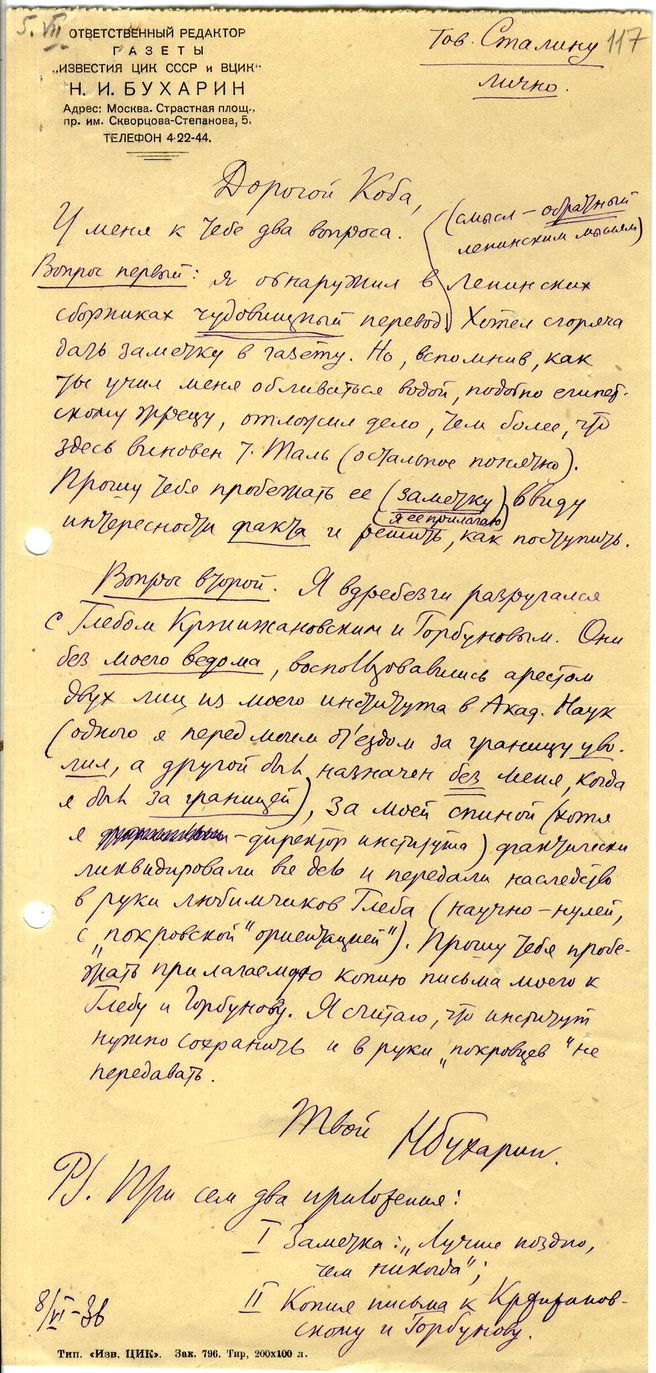 5. VII
ОТВЕТСТВЕННЫЙ РЕДАКТОР
ГАЗЕТЫ
„ИЗВЕСТИЯ ЦИК СССР и ВЦИК“
Н. И. БУХАРИН
Адрес: Москва. Страстная площ.,
пр. им. Скворцова-Степанова, 5.
ТЕЛЕФОН 4-22-44.
Тов. Сталину
117
лично.
Дорогой Коба,
У меня к тебе два вопроса.
(смысл – обратный
ленинским мыслям)
Вопрос первый: я обнаружил в Ленинских
сборниках чудовищный перевод. Хотел сгоряча
дать заметку в газету. Но, вспомнив, как
ты учил меня обливаться водой, подобно египет-
скому жрецу, отложил дело, тем более, что
здесь виновен т. Таль (остальное понятно).
Прошу тебя пробежать ее (заметку) ввиду
(я ее прилагаю)
интересности факта и решить, как поступить.
Вопрос второй. Я вдребезги разругался
с Глебом Кржижановским и Горбуновым. Они
без моего ведома, воспользовавшись арестом
двух лиц из моего института в Акад. Наук
(одного я перед моим от'ездом за границу уво-
лил, а другой был назначен без меня, когда
я был за границей), за моей спиной (хотя
я – директор института) фактически
ликвидировали все дело и передали наследство
в руки любимчиков Глеба (научно – нулей,
с „покровской" ориентацией"). Прошу тебя пробе-
жать прилагаемую копию письма моего к
Глебу и Горбунову. Я считаю, что институт
нужно сохранить и в руки „покровцев" не
передавать.
Твой Н Бухарин.
PS. При сем два приложения:
I Заметка: „Лучше поздно,
чем никогда";
II Копия письма к Кржижанов-
скому и Горбунову.
8/VI-36
Тип. «Изв. ЦИК». Зак. 796. Тир. 200x100 л.